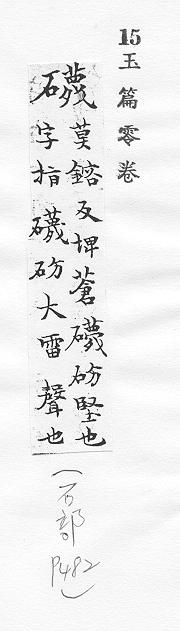 15玉篇零卷
礣
莫鎋反埤蒼礣砎堅也
字指礣砎大雷聲也
(石部 P482)